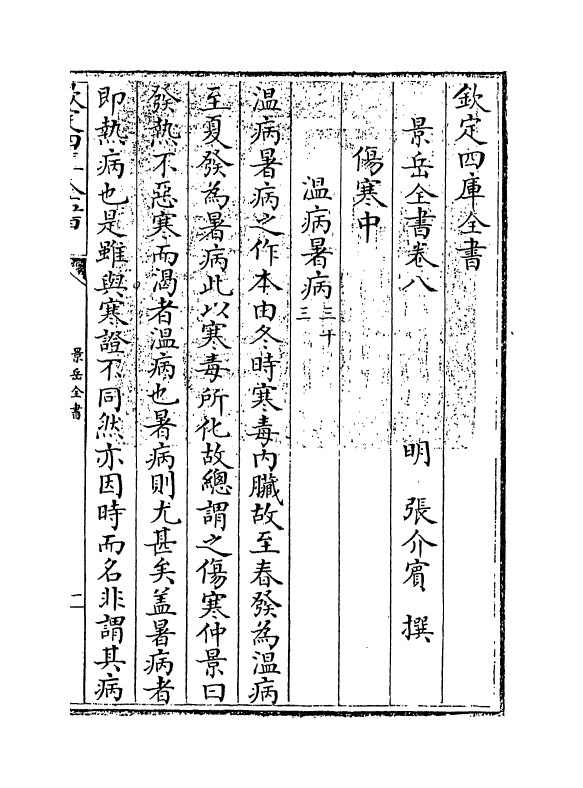 欽定四庫全書
景岳全書卷八
明 張介賓 撰
傷寒中
溫病暑病三十三
溫病暑病之作本由冬時寒毒內臟故至春發為溫病
至夏發為暑病此以寒毒所化故總謂之傷寒仲景曰
發熱不惡寒而渴者溫病也暑病則尤甚矣盖暑病者
即熱病也是雖與寒證不同然亦因時而名非謂其病
欽定四庫全書
景岳全書